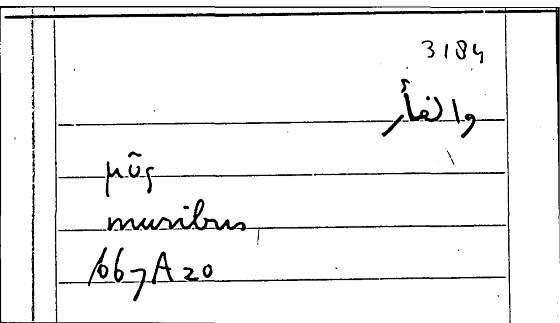 3184
والفأر
μῦς
muribus
667A20